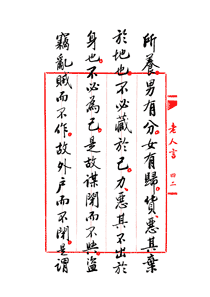 老人言 四二
所養。男有分。女有歸。貨惡其棄
於地也。不必藏於己。力惡其不出於
身也。不必為己。是故謀閉而不興。盜
竊亂賊而不作。故外戶而不閉。是謂